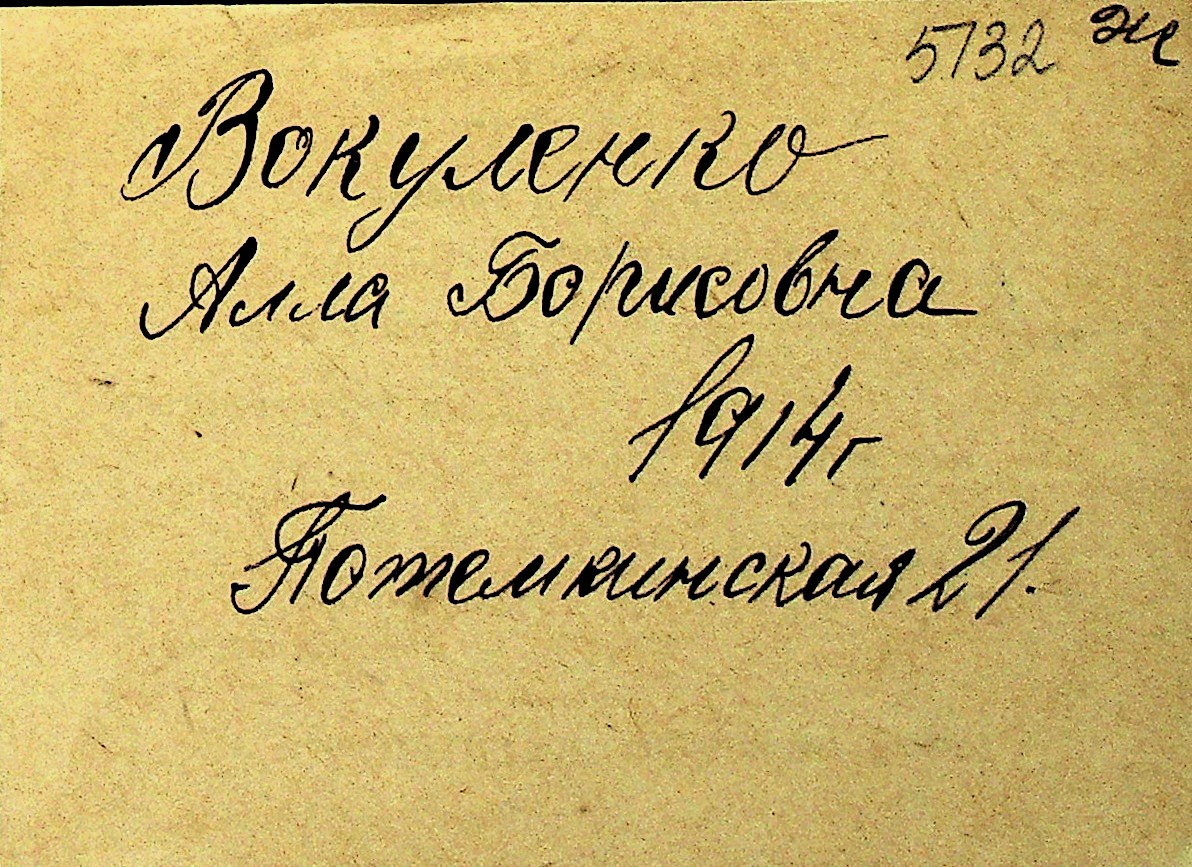 5132 ж
Вокуленко
Алла Борисовна
1914г
Потемкинская 21.